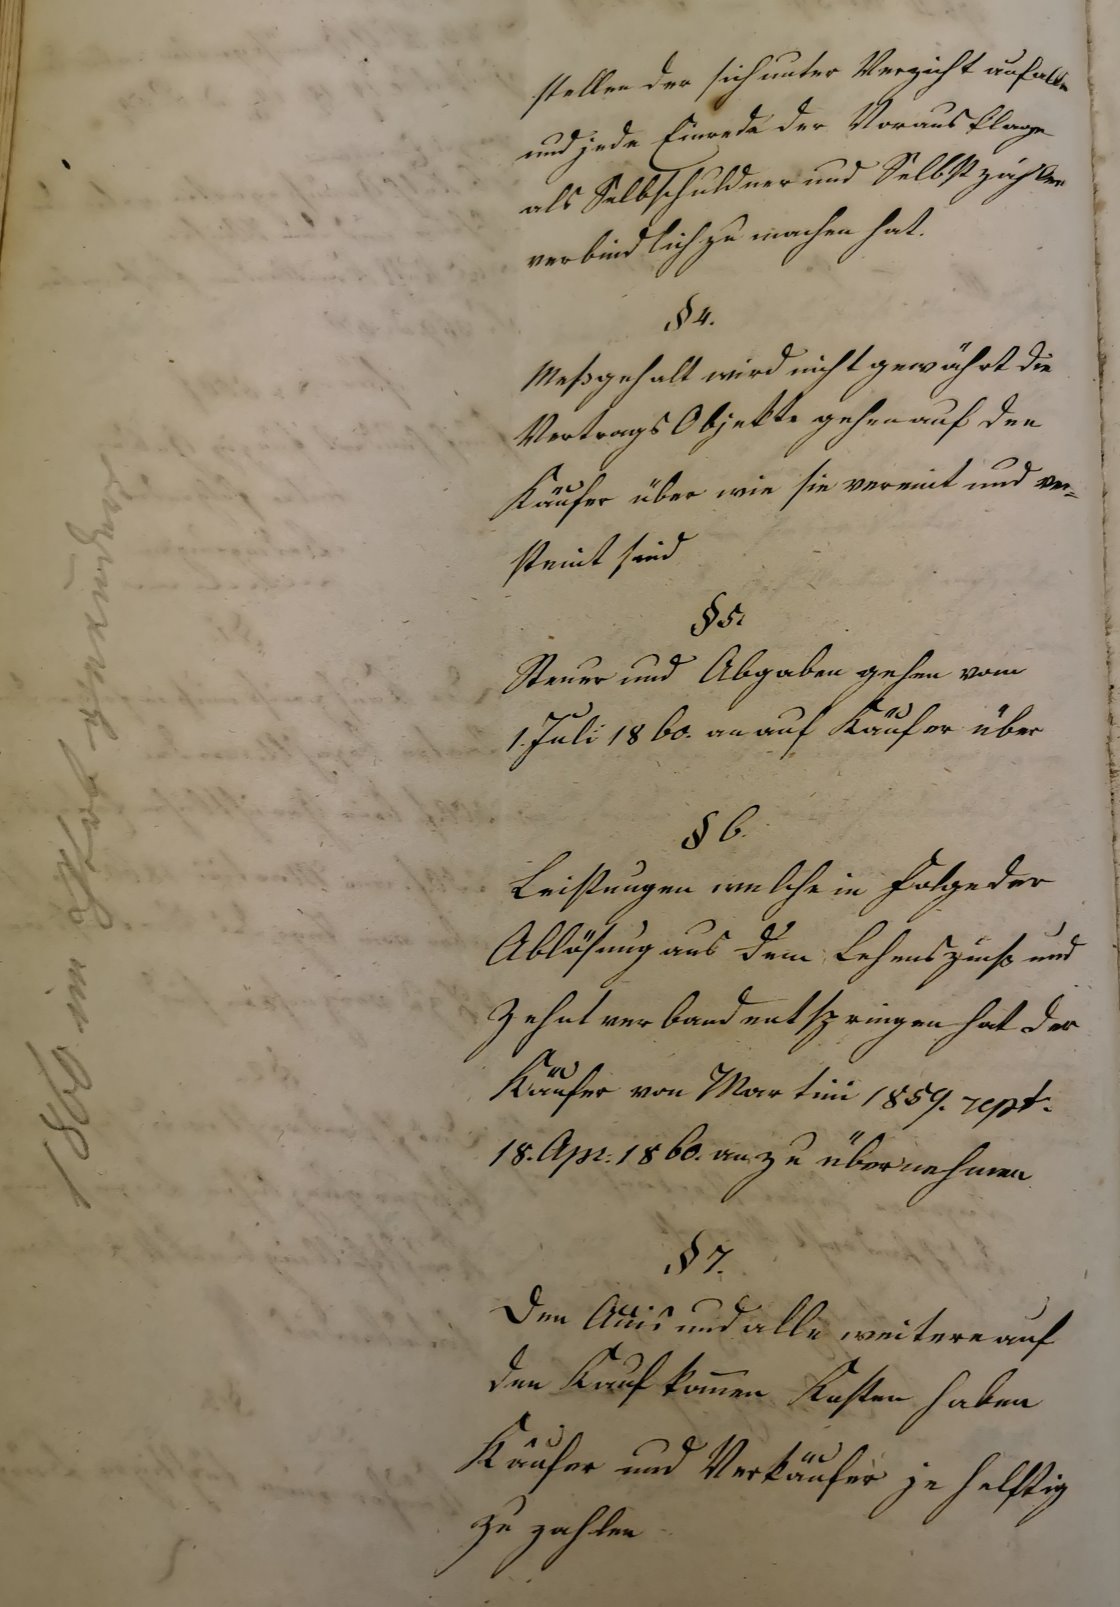 stellen der sich unter Verzicht auf alle
und jede Einrede der Vorausklage
als Selbschuldner und Selbstzahler
verbindlich zu machen hat.
§ 4.
Meßgehalt wird nicht gewährt die
Vertrags Objekte gehen auf den
Käufer über wie sie vermint und ver=
steint sind
§ 5.
Steuer und Abgaben gehen vom
1. Juli 1860. an auf Käufer über
§ 6.
Leistungen welche in Folge der
Ablösung aus dem Lehenszinß und
Zehntverband entspringen hat der
Käufer von Martini 1859. rept.
18. Apr. 1860. an zu übernehmen
§ 7.
Den Accis und alle weitere auf
den Kauf kom̄en Kosten haben
Käufer und Verkäufer je helftig
zu zahlen
1860 im